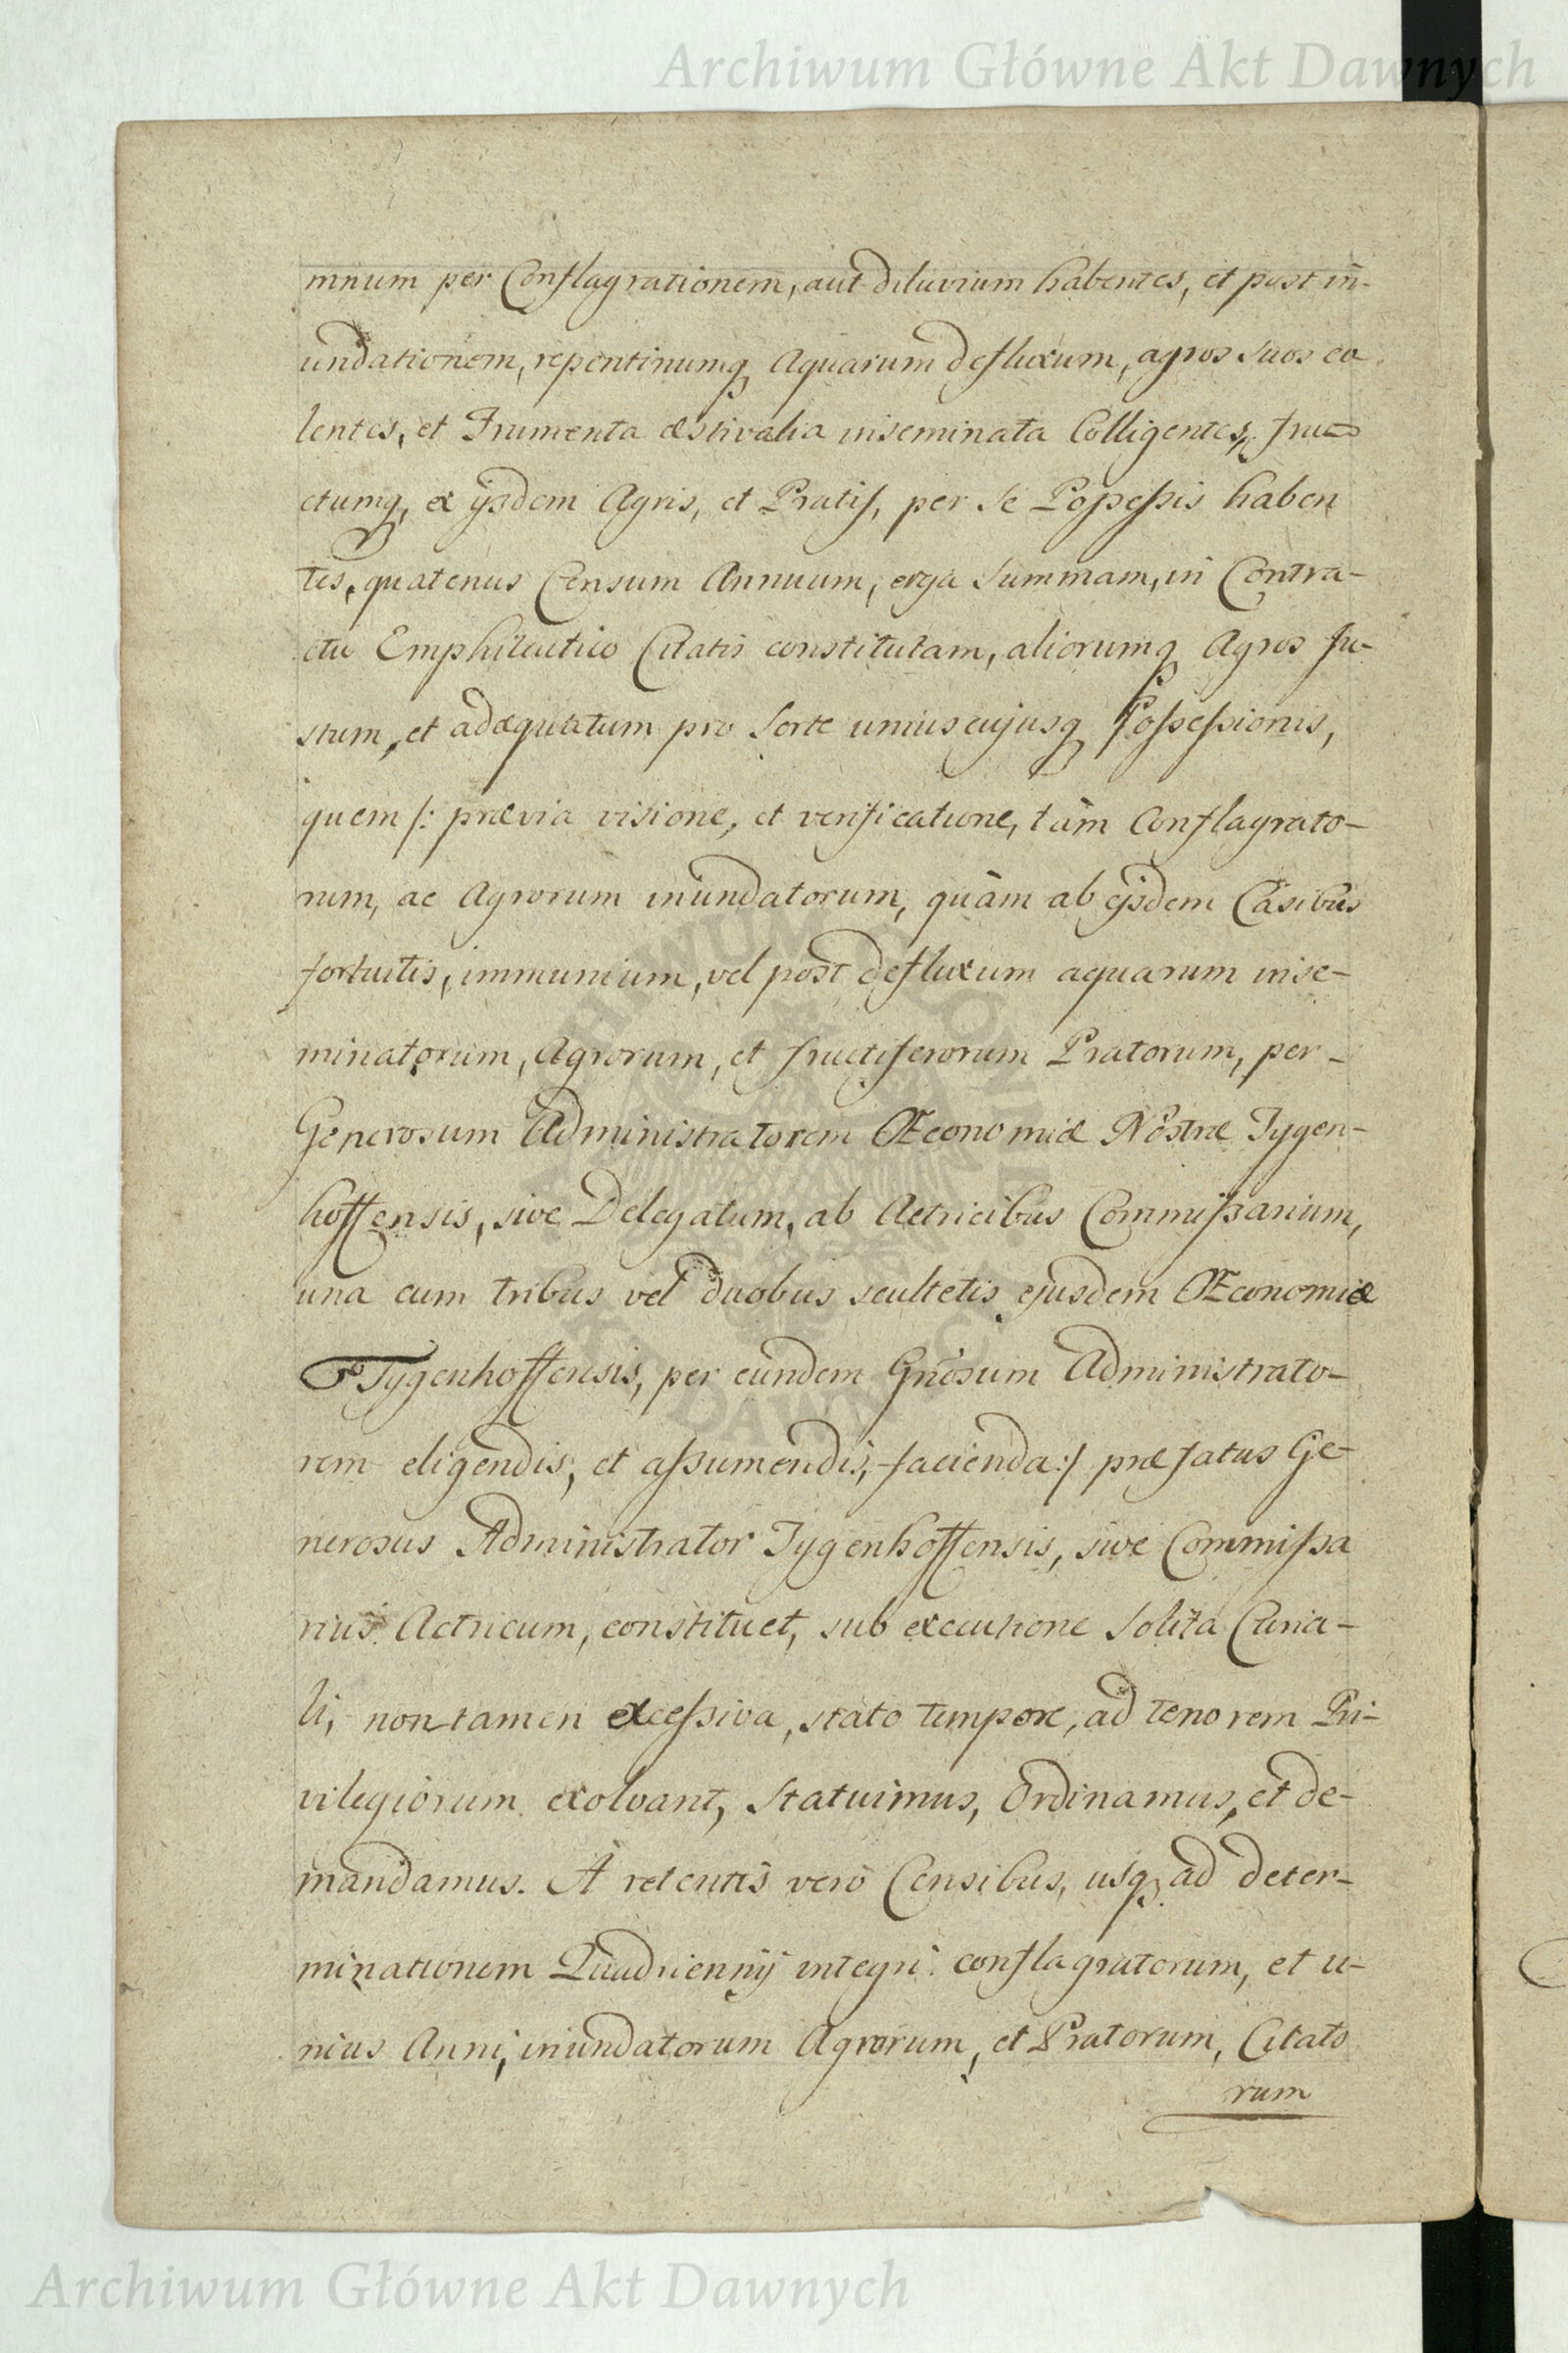 Archiwum Główne Akt Dawnych
mnum per Conflagrationem, aut diluvium habentes, et post in-
undationem, repentinumq, Aquarum defluxum, agros suos co
lentes, et Frumenta æstivalia inseminata Colligentes, fru=
ctumq, ex ijsdem Agris, et Pratis, per se Possessis haben
tes, quatenus Censum Annuum, erga Summam, in Contra-
ctu Emphiteutico Citatis constitutam, aliorumq Agros Ju-
stum, et adæquatum pro Sorte uniuscujusq Possessionis,
quem /: prævia visione, et verificatione, tàm Conflagrato-
rum, ac Agrorum inundatorum, quàm ab ejsdem Casibus
fortuitis, immunium, vel post defluxum aquarum inse-
minatorum, Agrorum, et fructiferorum Pratorum, per-
Generosum Administratorem Œconomiæ Nostræ Tygen-
hoffensis, sive Delegatum, ab Actricibus Commissarium,
una cum tribus vel duobus scultetis ejusdem Œconomiæ
Tygenhoffensis, per eundem Gnosum Administrato-
rem eligendis, et assumendis, facienda :/ præfatus Ge-
nerosus Administrator Tygenhoffensis, sive Commissa
rius Actricum, constituet, sub executione Solita Curia-
li, non tamen excessiva, stato tempore, ad tenorem Pri-
vilegiorum exolvant, Statuimus, Ordinamus, et de-
mandamus. A retentis verò Censibus, usq, ad deter-
minationem Quadriennij integri conflagratorum, et u-
nius Anni, inundatorum Agrorum, et Pratorum, Citato
rum
Archiwum Główne Akt Dawnych